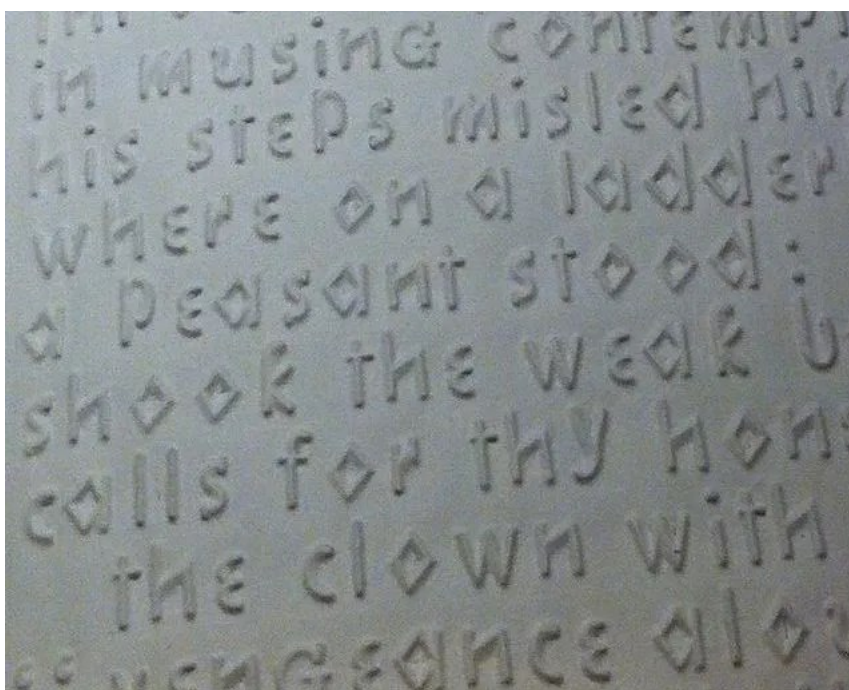 in musing contempl
his steps misled him
where on a ladder
a peasant stood:
shook the weak b
calls for thy hons
the clown with
“ vengeance alo